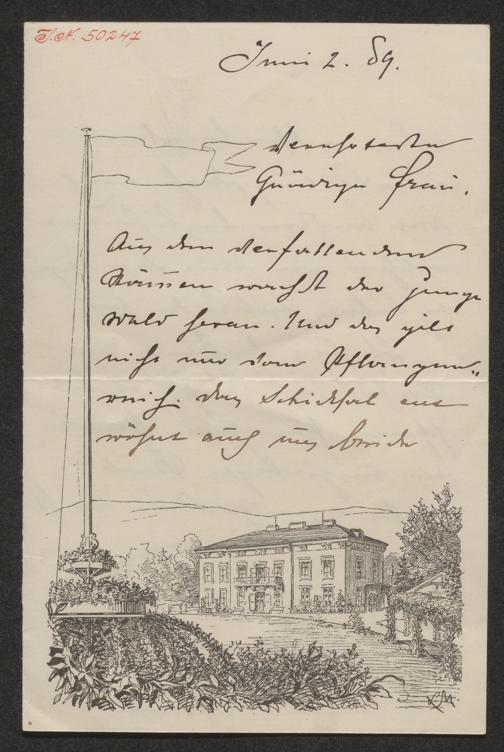 I.N. 50247
Juni 2. 89.
Verehrteste
Gnädige Frau.
Aus den verfallenden
Bäumen wächst der junge
Wald heran. Und das gilt
nicht nur vom Pflanzen„
reich. Das Schicksal
auch uns beide